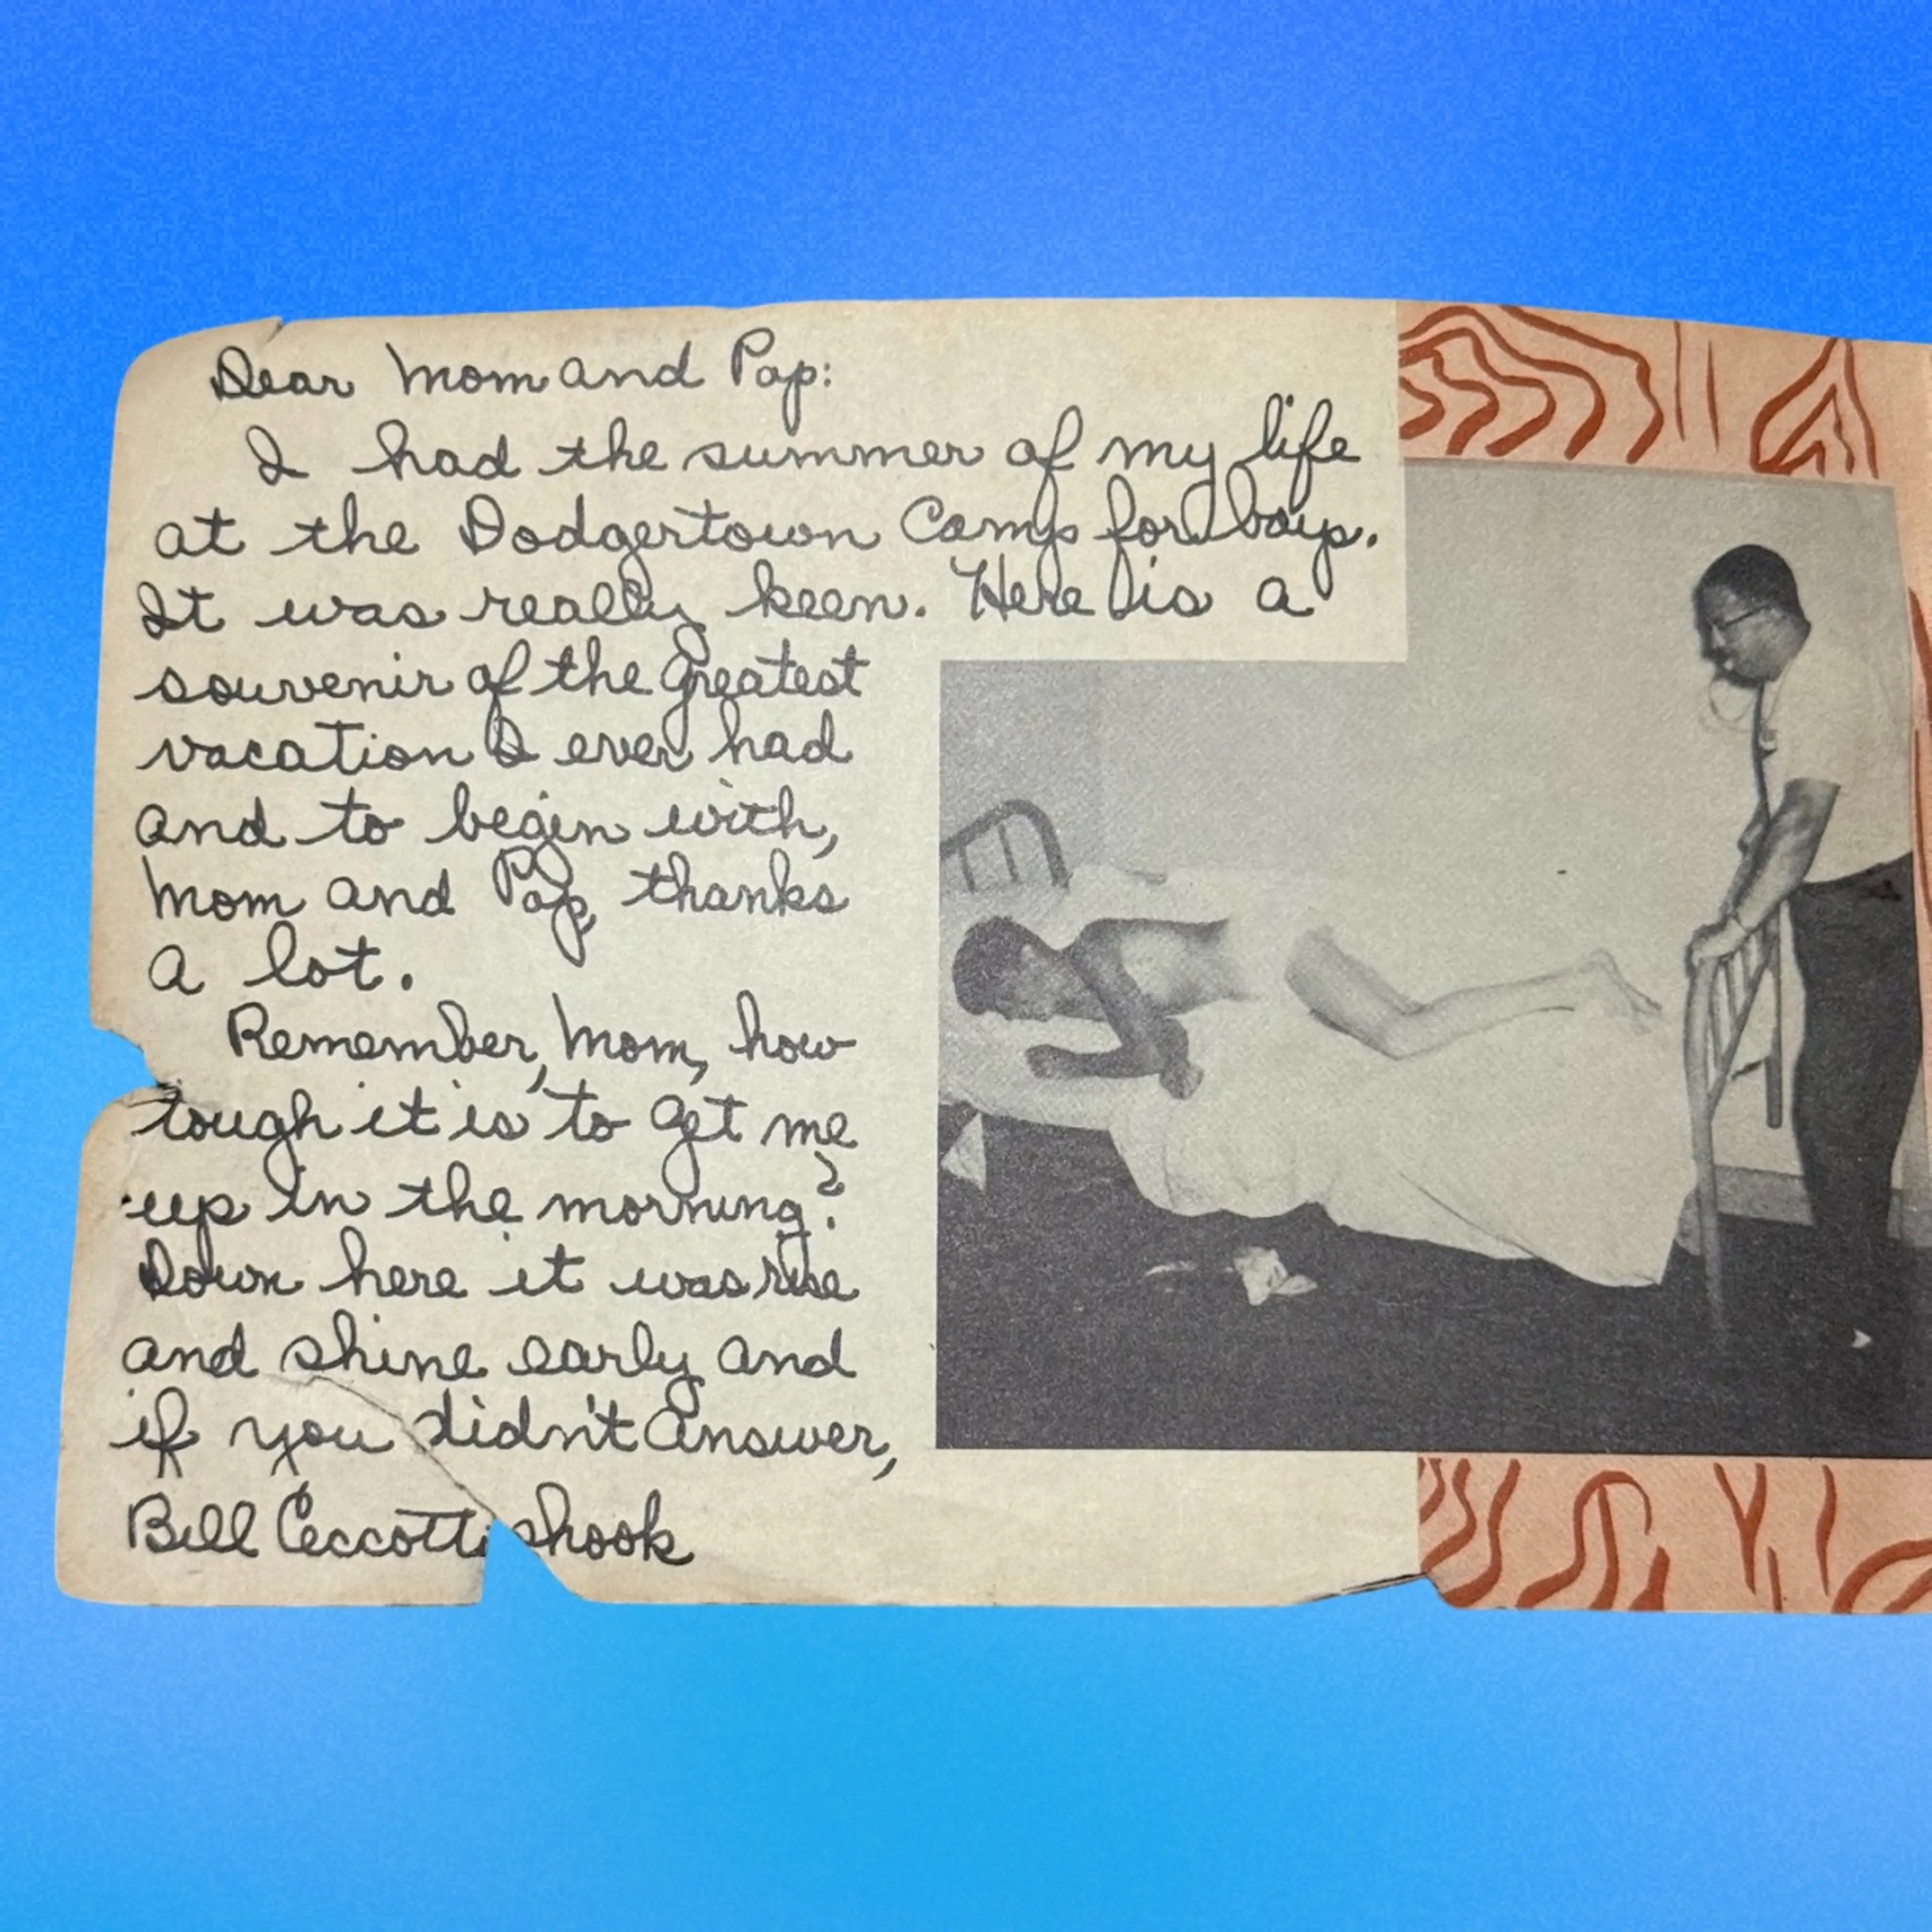 Dear Mom and Pop:
I had the summer of my life
at the Dodgertown Camp for boys.
It was really keen. Here is a
souvenir of the greatest
vacation I ever had
and to begin with,
Mom and Pop, thanks
a lot.
Remember, Mom, how
tough it is to get me
up in the morning?
Down here it was rise
and shine early and
if you didn't answer,
Bill Ceccotti shook